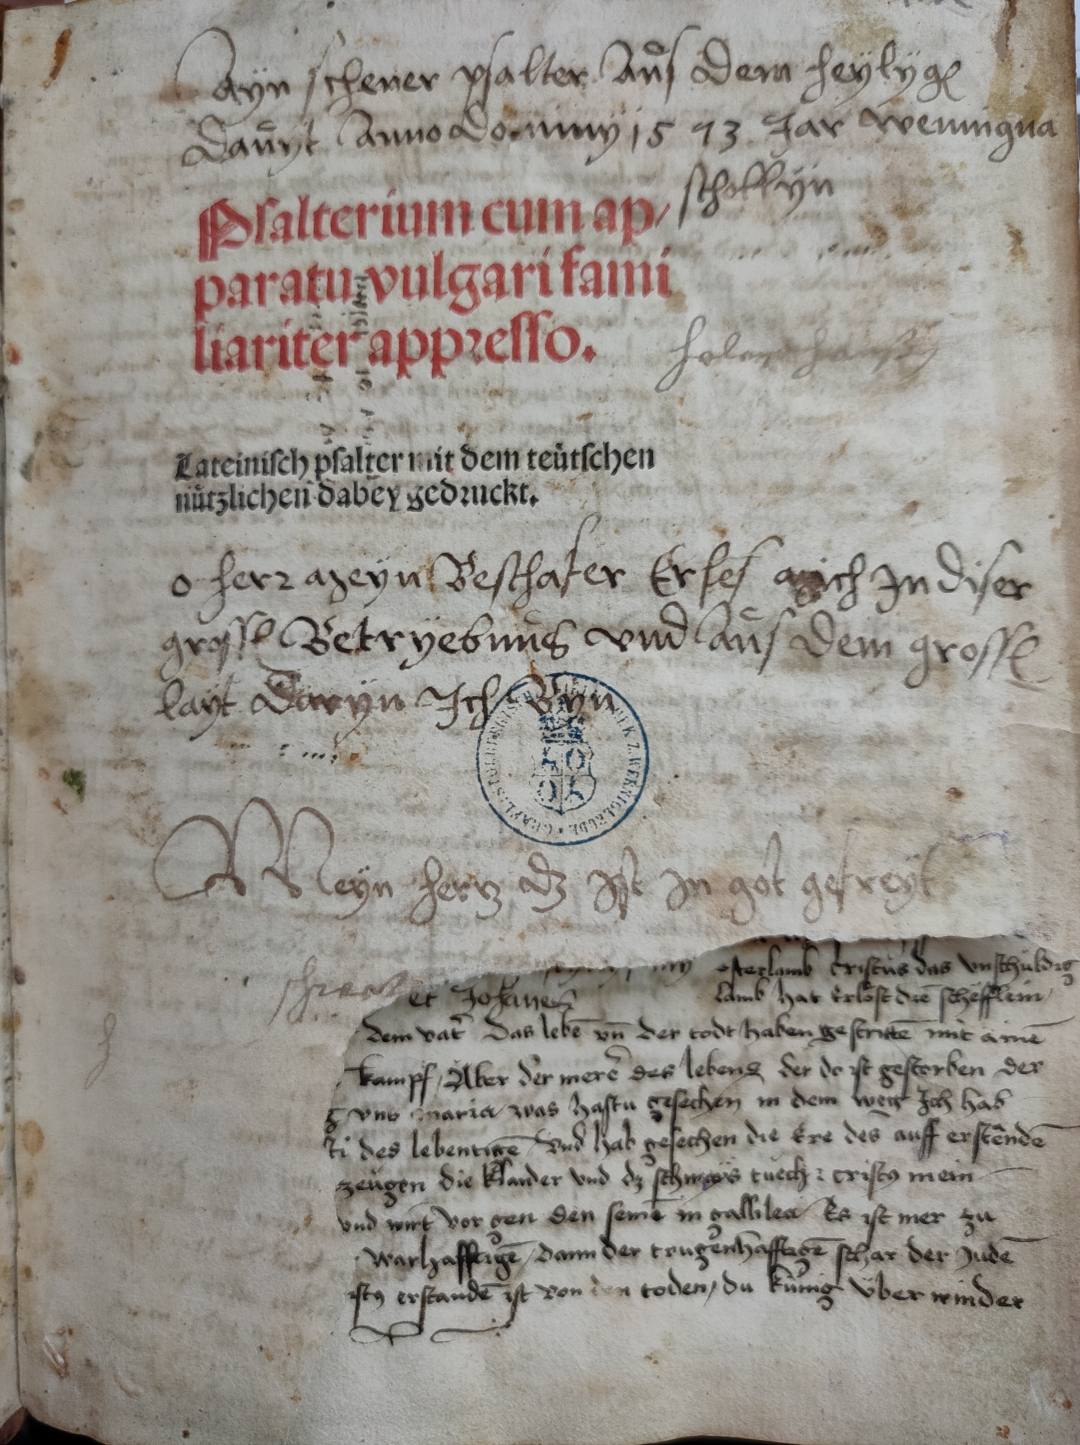 Ayn schener psalter Aůs dem heylyge
Dauyt Anno dominy 1593 Jar
Psalterium cum ap/
paratu vulgari fami
liariter appresso.
Lateinisch psalter mit dem teütschen
nützlichen dabey gedruckt.
o herr meyn Beschafer Erles mich In diser
Betryebnus und Aůs dem grosse
layt Daryn Ich Byn
Meyn hertz dz ist In got gefreyt
osterlamb Cristus das vnschuldig
et Johanes lamb hat Erlöst die schefflein
dem vatr Das lebē vn̄ der todt haben gestrittē mit ainē
kampf / Aber der des lebens der do ist gestorben der
vns maria was hastu gesechen in dem weg Ich hab
ti des lebentigē vnd hab gesechen die Ere des auff erstēndē
zeugen die klaider vnd dz tuech mein
vnd wirt vor gen den seinē in gallilea Es ist mer zu
warhafftigē / dann der trugenhafftigē schar der Judē
erstandē ist von den toden / du künig über winder